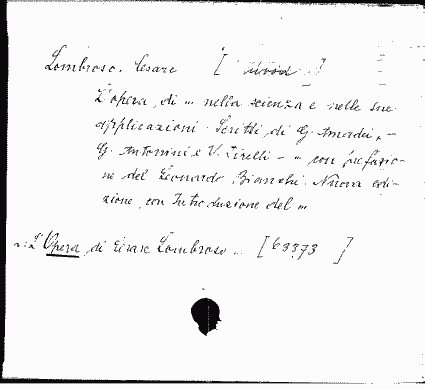 Lombroso. Cesare [ ]
L'opera di ... nella scienza e nelle sue
applicazioni. Scritti di G. Amadei, -
G. Antonini e V. Tirelli - ... con prefazio-
ne del Leonardo Bianchi. Nuova edi-
zione con Introduzione del ...
L'Opera di Cesare Lombroso ... [63373 ]